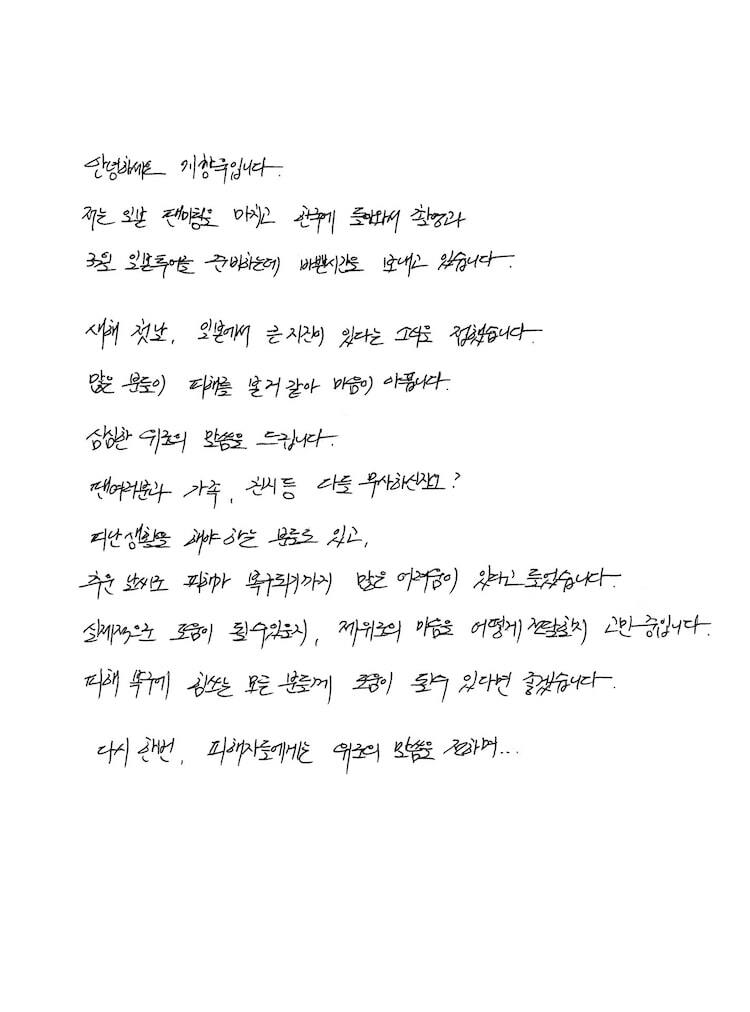 안녕하세요 지창욱입니다.
저는 연말 팬미팅을 마치고 한국에 돌아와서 촬영과
3월 일본투어를 준비하는데 바쁜시간을 보내고 있습니다.
새해 첫날, 일본에서 큰 지진이 있다는 소식을 접했습니다.
많은 분들이 피해를 본거 같아 마음이 아픕니다.
심심한 위로의 말씀을 드립니다.
팬여러분과 가족, 친지등 다들 무사하신지요?
피난생활을 해야 하는 분들도 있고,
추운 날씨로 피해가 복구되기까지 많은 어려움이 있다고 들었습니다.
실제적으로 도움이 될수있을지, 제위로의 마음을 어떻게 전달할지 고민중입니다.
피해 복구에 힘쓰는 모든 분들께 도움이 될수 있다면 좋겠습니다.
다시 한번, 피해자들에게는 위로의 말씀을 전하며...